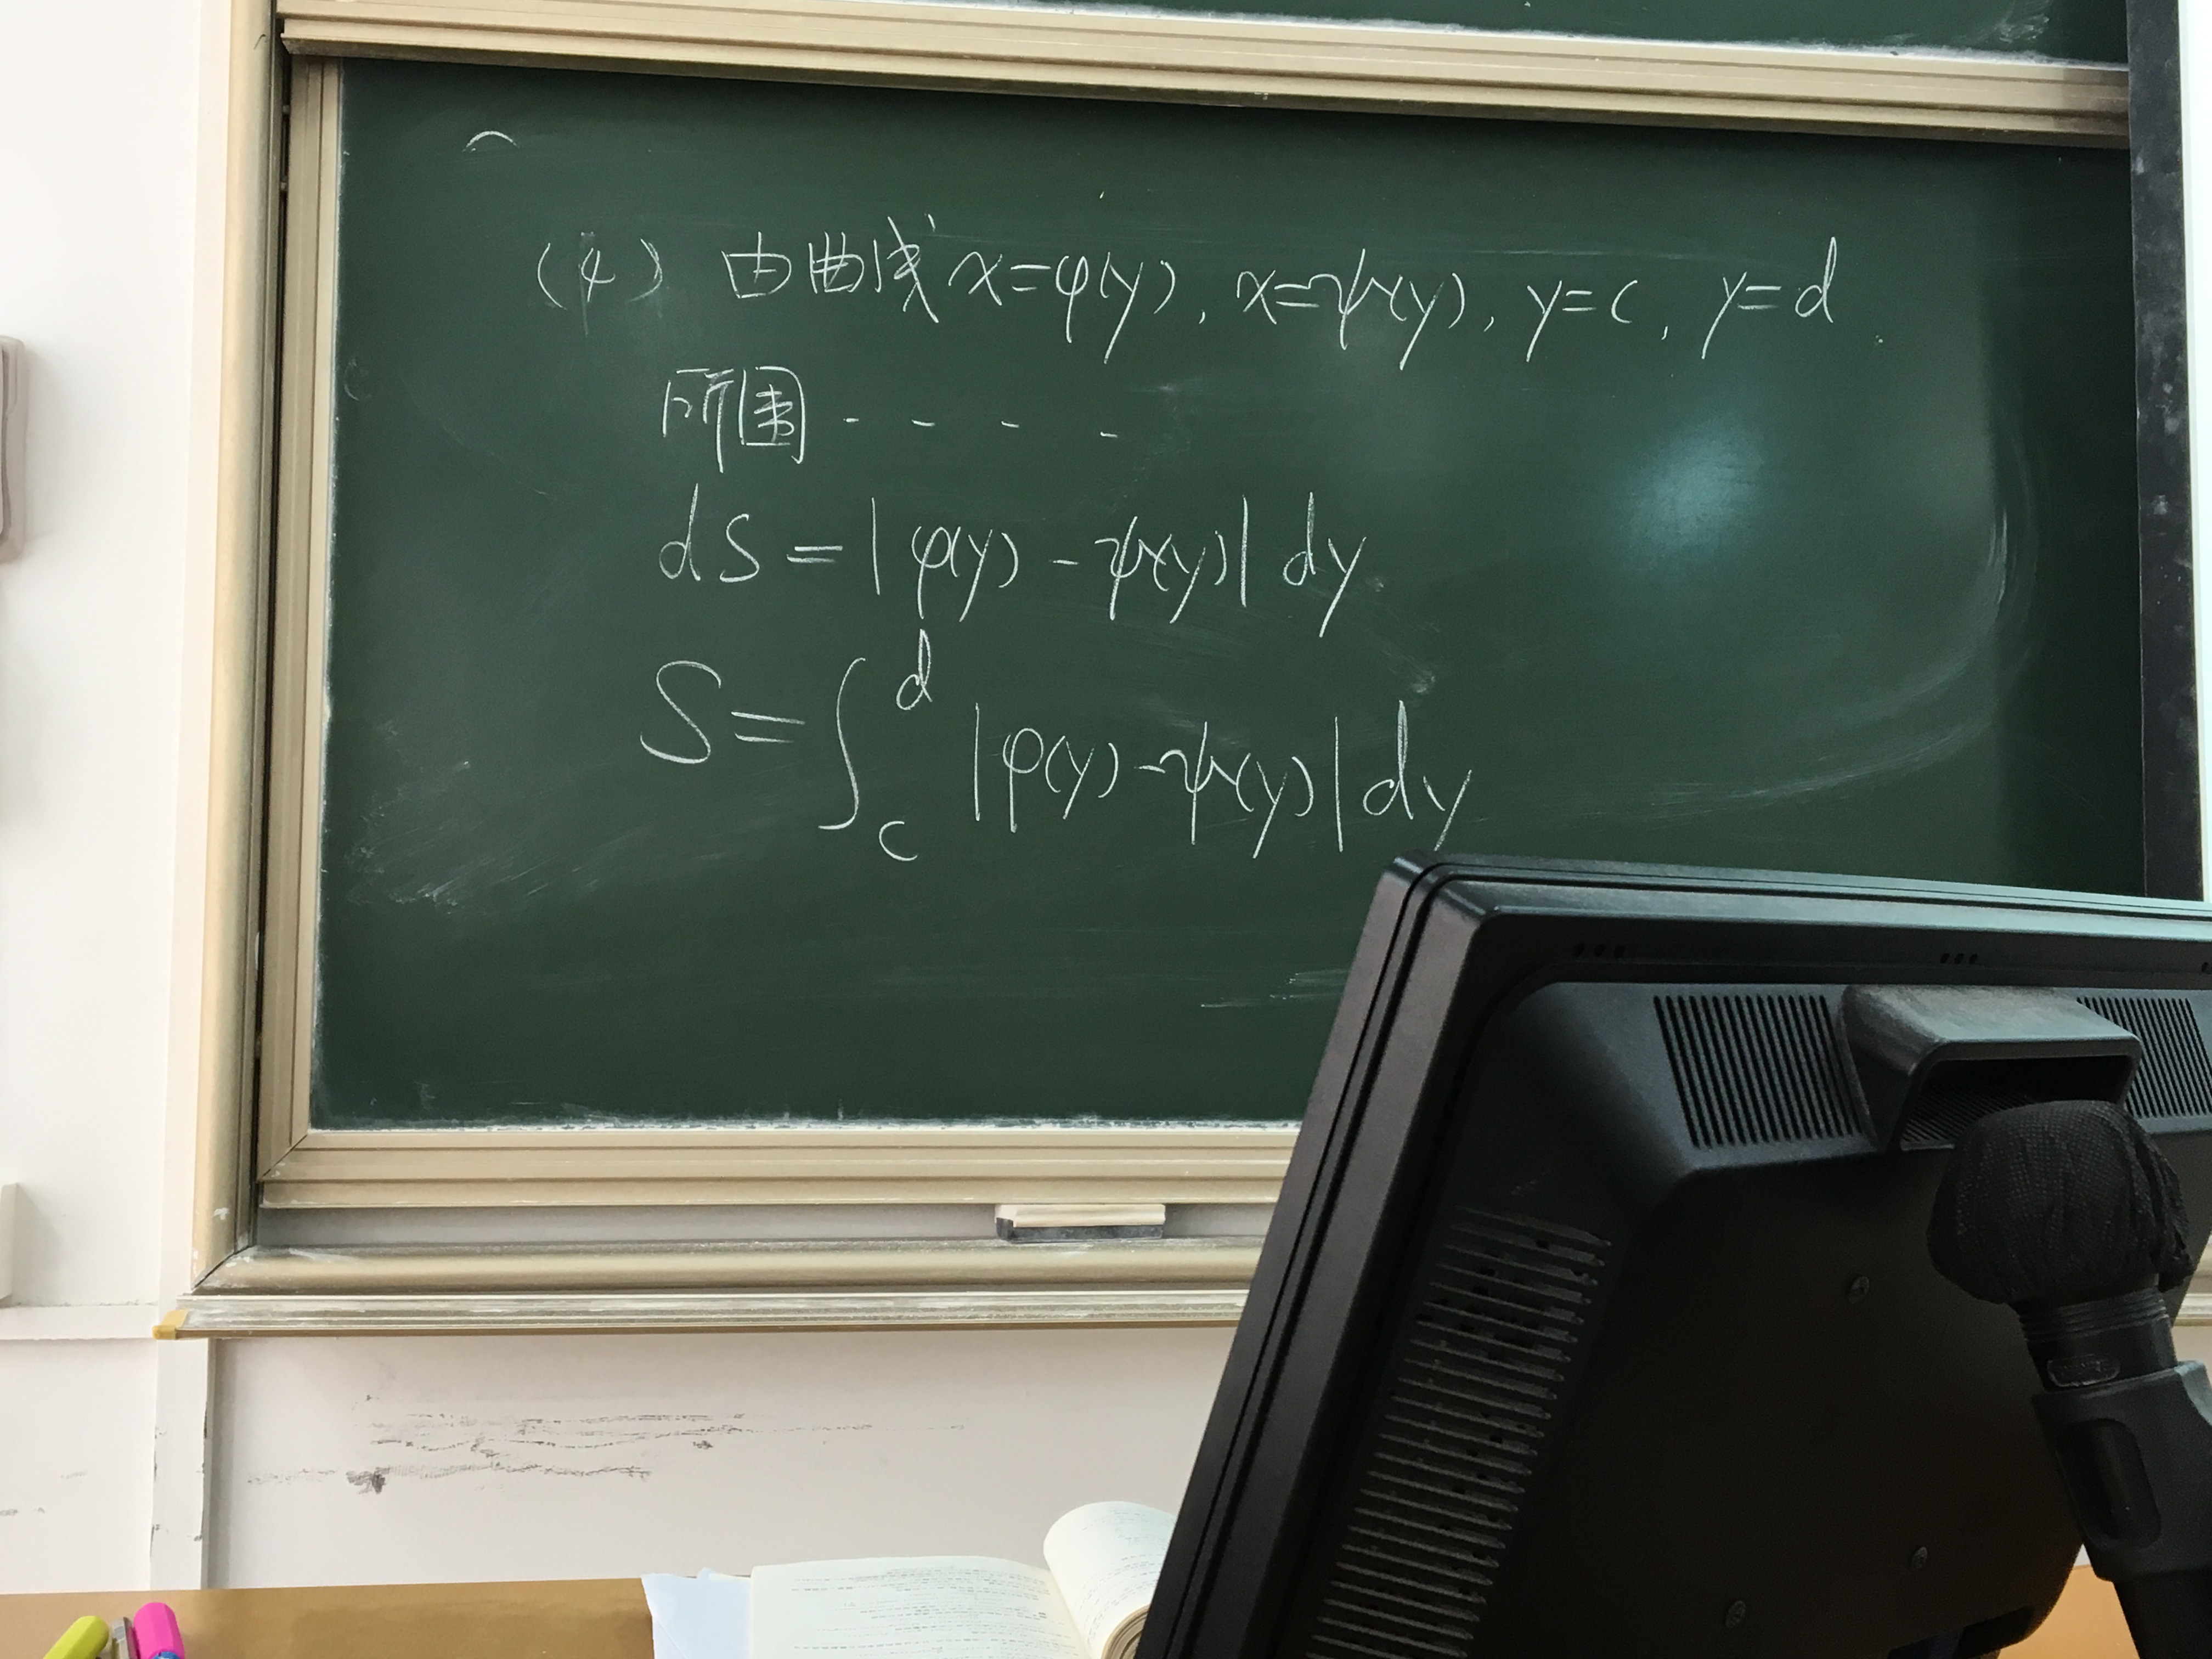 (4) 由曲线 x=φ(y), x=ψ(y), y=c, y=d.
所围 - - - -
dS = |φ(y) - ψ(y)| dy
S = ∫_c^d |φ(y) - ψ(y)| dy